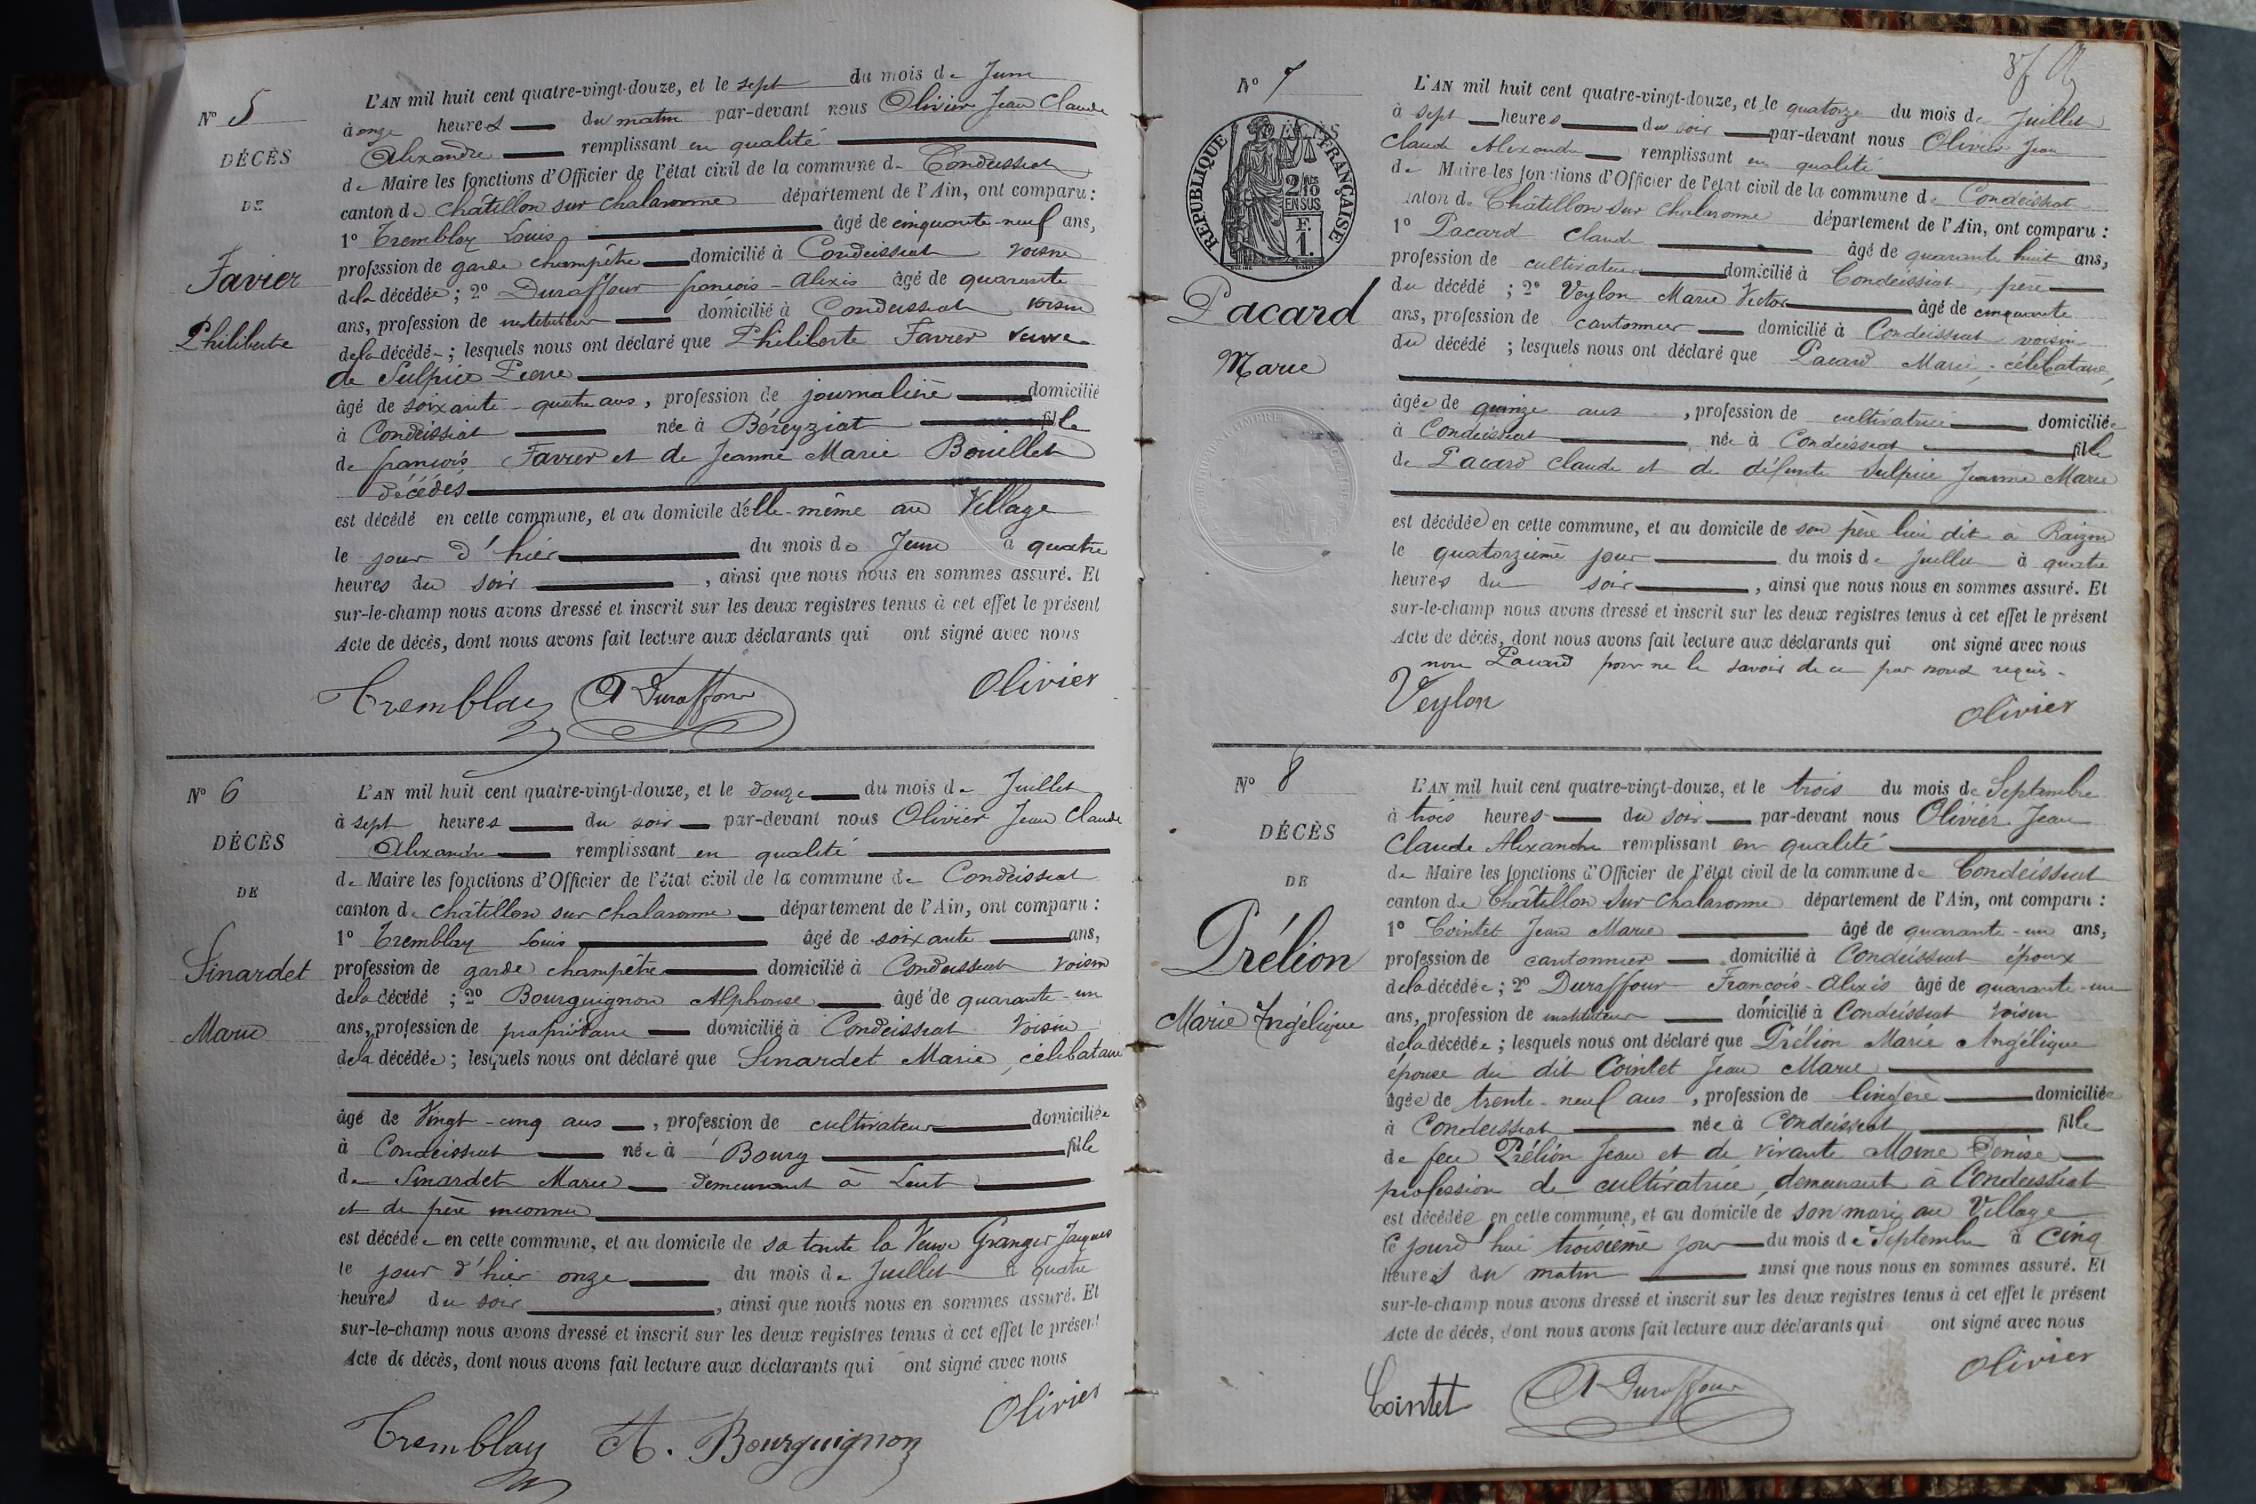 N° 5
DÉCÈS
DE
Favier
Philiberte
L'AN mil huit cent quatre-vingt-douze, et le sept du mois de Juin
à onze heures du matin par-devant nous Olivier Jean Claude
Alexandre remplissant en qualité
de Maire les fonctions d'Officier de l'état civil de la commune de Condeissiat
canton de Châtillon sur Chalaronne département de l'Ain, ont comparu :
1° Tremblay Louis âgé de cinquante-neuf ans,
profession de garde champêtre domicilié à Condeissiat voisin
de la décédée ; 2° Duraffour françois-Alexis âgé de quarante
ans, profession de instituteur domicilié à Condeissiat voisin
de la décédée ; lesquels nous ont déclaré que Philiberte Favier veuve
de Sulpice Pierre
âgé de soixante-quatre ans, profession de journalière domicilié
à Condeissiat née à Béreyziat fille
de françois Favier et de Jeanne Marie Bouillet
décédés
est décédé en cette commune, et au domicile d'elle-même au Village
le jour d'hier du mois de Juin à quatre
heures du soir , ainsi que nous nous en sommes assuré. Et
sur-le-champ nous avons dressé et inscrit sur les deux registres tenus à cet effet le présent
Acte de décès, dont nous avons fait lecture aux déclarants qui ont signé avec nous
Tremblay A Duraffour Olivier
N° 6
DÉCÈS
DE
Sinardet
Marie
L'AN mil huit cent quatre-vingt-douze, et le douze du mois de Juillet
à sept heures du soir par-devant nous Olivier Jean Claude
Alexandre remplissant en qualité
de Maire les fonctions d'Officier de l'état civil de la commune de Condeissiat
canton de Châtillon sur Chalaronne département de l'Ain, ont comparu :
1° Tremblay Louis âgé de soixante ans,
profession de garde champêtre domicilié à Condeissiat voisin
de la décédé ; 2° Bourguignon Alphonse âgé de quarante-un
ans, profession de propriétaire domicilié à Condeissiat voisin
de la décédée ; lesquels nous ont déclaré que Sinardet Marie, célibataire
âgé de Vingt-cinq ans , profession de cultivateur domiciliée
à Condeissiat née à Bourg fille
de Sinardet Marie demeurant à Lent
et de père inconnu
est décédée en cette commune, et au domicile de sa tante la Veuve Granger Jacques
le jour d'hier onze du mois de Juillet à quatre
heures du soir , ainsi que nous nous en sommes assuré. Et
sur-le-champ nous avons dressé et inscrit sur les deux registres tenus à cet effet le présent
Acte de décès, dont nous avons fait lecture aux déclarants qui ont signé avec nous
Tremblay A. Bourguignon Olivier
N° 7
DÉCÈS
RÉPUBLIQUE FRANÇAISE
2/10
EN SUS
F.
1.
Pacard
Marie
L'AN mil huit cent quatre-vingt-douze, et le quatorze du mois de Juillet
à sept heures du soir par-devant nous Olivier Jean
Claude Alexandre remplissant en qualité
de Maire les fonctions d'Officier de l'état civil de la commune de Condeissiat
canton de Châtillon sur Chalaronne département de l'Ain, ont comparu :
1° Pacard Claude âgé de quarante huit ans,
profession de cultivateur domicilié à Condeissiat, père
du décédé ; 2° Veylon Marie Victor âgé de cinquante
ans, profession de cantonnier domicilié à Condeissiat voisin
du décédé ; lesquels nous ont déclaré que Pacard Marie, célibataire,
âgée de quinze ans , profession de cultivatrice domiciliée
à Condeissiat née à Condeissiat fille
de Pacard Claude et de défunte Sulpice Jeanne Marie
est décédée en cette commune, et au domicile de son père lieu dit à Raizon
le quatorzième jour du mois de Juillet à quatre
heures du soir , ainsi que nous nous en sommes assuré. Et
sur-le-champ nous avons dressé et inscrit sur les deux registres tenus à cet effet le présent
Acte de décès, dont nous avons fait lecture aux déclarants qui ont signé avec nous
non Pacard pour ne le savoir de ce par nous requis.
Veylon Olivier
N° 8
DÉCÈS
DE
Prélion
Marie Angélique
L'AN mil huit cent quatre-vingt-douze, et le trois du mois de Septembre
à trois heures du soir par-devant nous Olivier Jean
Claude Alexandre remplissant en qualité
de Maire les fonctions d'Officier de l'état civil de la commune de Condeissiat
canton de Châtillon sur Chalaronne département de l'Ain, ont comparu :
1° Cointet Jean Marie âgé de quarante-un ans,
profession de cantonnier domicilié à Condeissiat époux
de la décédée ; 2° Duraffour François-Alexis âgé de quarante-un
ans, profession de instituteur domicilié à Condeissiat voisin
de la décédée ; lesquels nous ont déclaré que Prélion Marie Angélique
épouse du dit Cointet Jean Marie
âgée de trente-neuf ans , profession de lingère domiciliée
à Condeissiat née à Condeissiat fille
de feu Prélion Jean et de vivante Moine Denise
profession de cultivatrice, demeurant à Condeissiat
est décédée en cette commune, et au domicile de son mari au Village
le jourd'hui troisième jour du mois de Septembre à cinq
heures du matin ainsi que nous nous en sommes assuré. Et
sur-le-champ nous avons dressé et inscrit sur les deux registres tenus à cet effet le présent
Acte de décès, dont nous avons fait lecture aux déclarants qui ont signé avec nous
Cointet A Duraffour Olivier